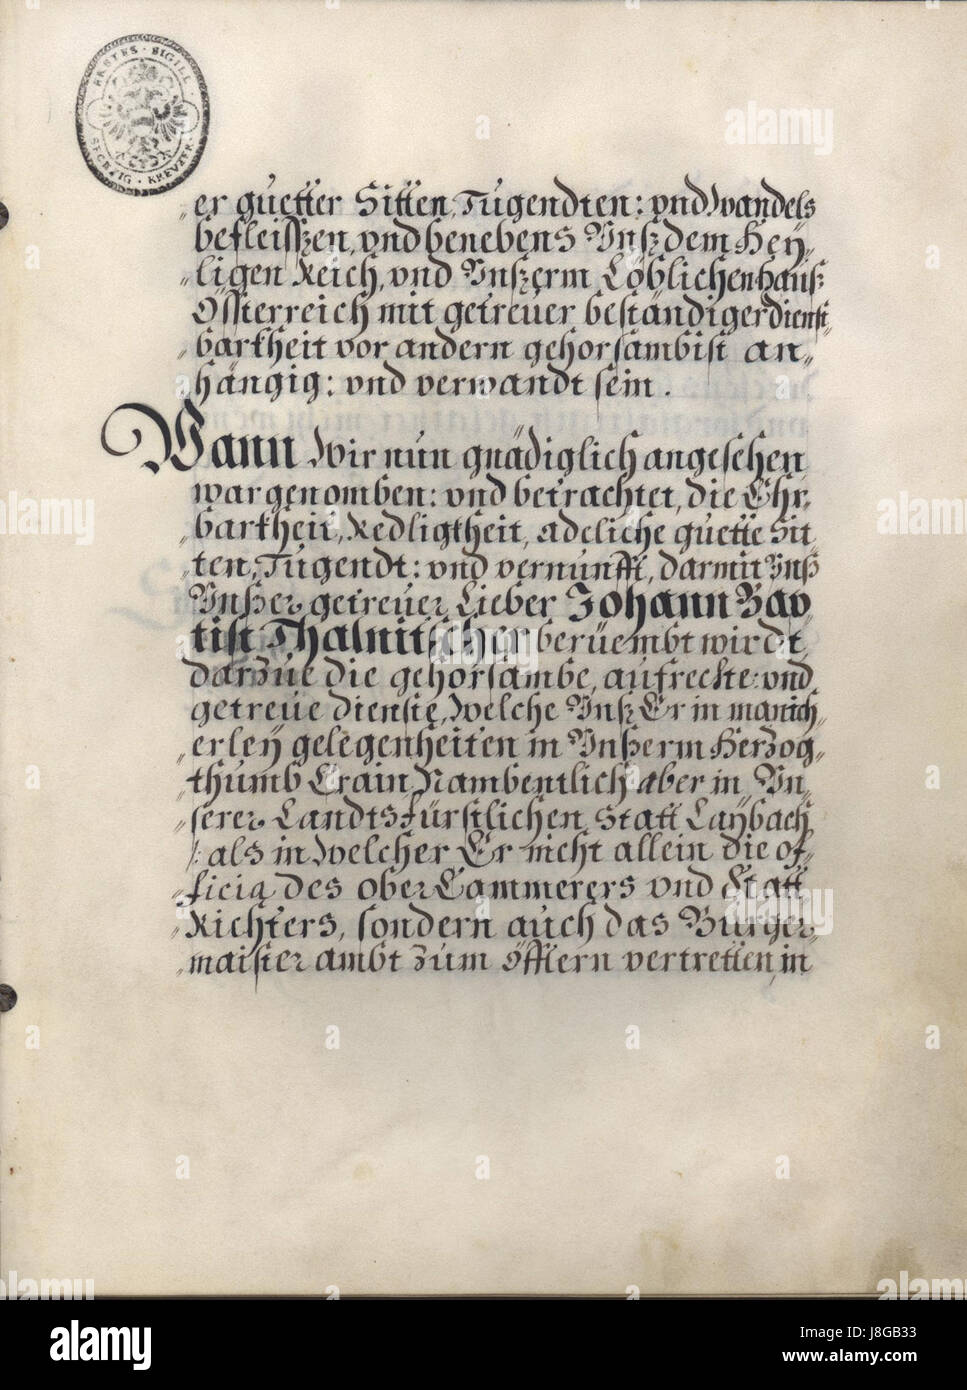 ERSTES · SIGILL · SECHZIG · KREVZER
er guetter Sitten, Tugendten: vnd wandels
befleisszen, vnd benebens Vnß, dem Hey„
„ligen Reich, vnd Vnßerm Löblichen hauß
Össterreich mit getreuer beständiger dienst„
„barkheit vor andern gehorsambist an„
„hängig: vnd verwandt sein.
Wann Wir nun gnädiglich angesehen
war genomben: vnd betrachtet, die Ehr„
„barkheit, Redligkheit, adeliche guette Sit„
„ten, Tugendt: vnd vernunfft, darmit Vnß
Vnßer getreuer Lieber Johann Bap„
tist Thalnitscher beruembt wirdt,
darzue die gehorsambe, aufrechte: vnd
getreue dienste, Welche Vnß Er in manich„
„erley gelegenheiten in Vnßerm Herzog„
„thumb Crain Nambentlich aber in Vn„
„serer Landtsfürstlichen Statt Laybach
/: als in Welcher Er nicht allein die of„
„ficia des ober Cammerers vnd Statt
„Richters, sondern auch das Burger„
„maister ambt zum öfftern vertretten, in
alamy
Image ID: J8GB33
www.alamy.com